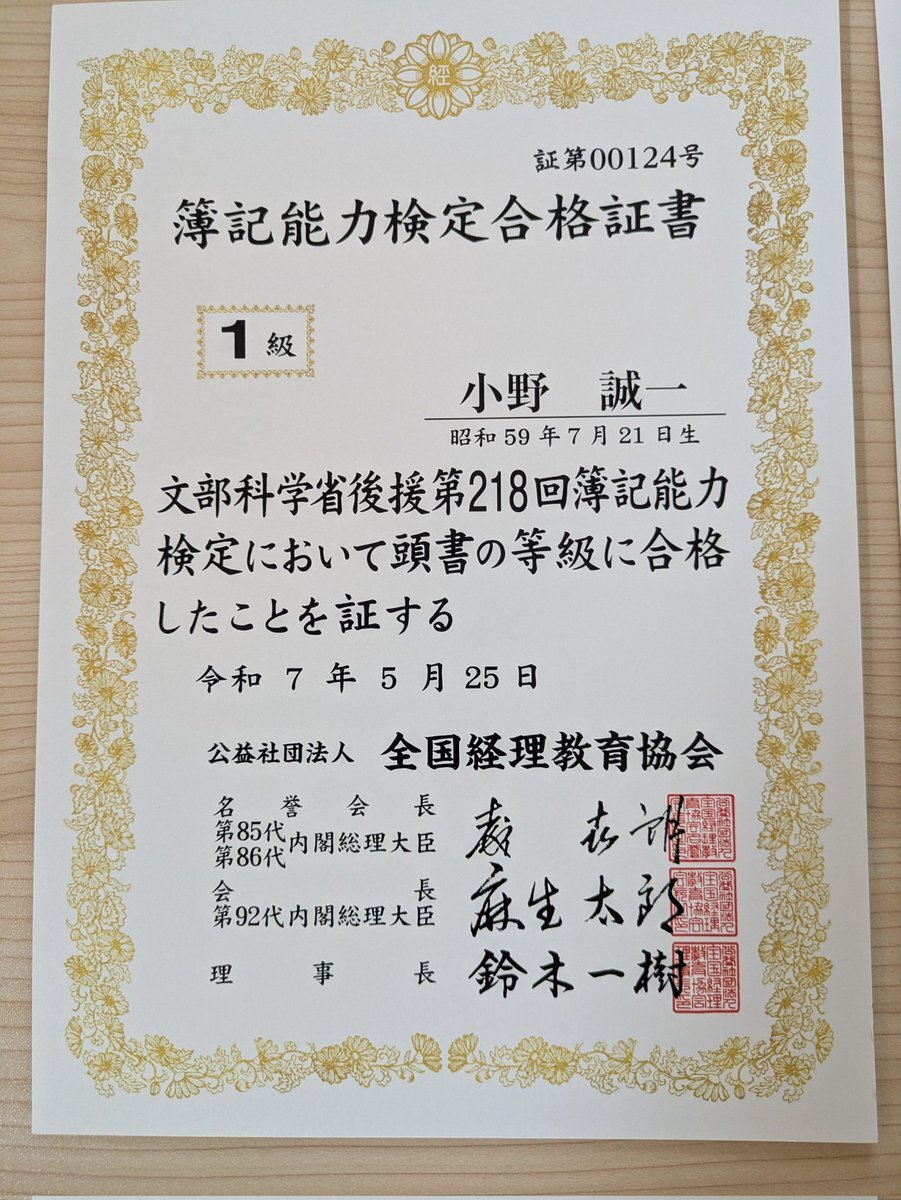 経
証第00124号
簿記能力検定合格証書
1級
小野 誠一
昭和59年7月21日生
文部科学省後援第218回簿記能力
検定において頭書の等級に合格
したことを証する
令和 7 年 5 月 25 日
公益社団法人 全国経理教育協会
名誉会長
第85代
第86代 内閣総理大臣
会長
第92代内閣総理大臣 麻生太郎
理事長 鈴木一樹